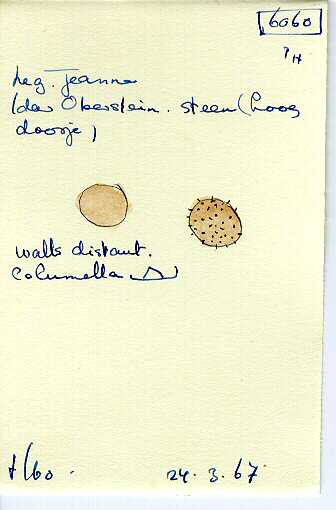 6060
leg. Jeanne
(da Oberstein. steen (hoog
doosje)
walls distant.
Columella
24. 3. 67.